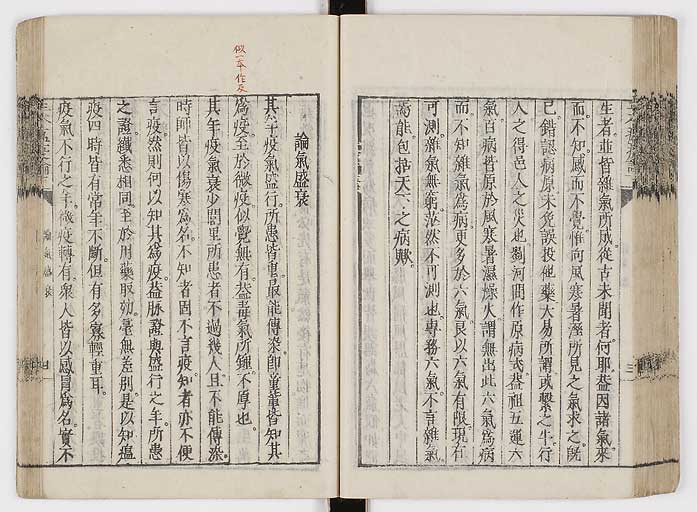 生者並皆雜氣所成從古未聞者何耶蓋因諸氣來
而不知感而不覺惟向風寒暑溼所見之氣求之旣
已錯認病原未免誤投他藥大易所謂或繫之牛行
人之得邑人之災也劉河間作原病式蓋祖五運六
氣百病皆原於風寒暑濕燥火謂無出此六氣爲病
而不知雜氣爲病更多於六氣良以六氣有限現在
可測雜氣無窮茫然不可測也專務六氣不言雜氣
焉能包括天下之病歟
論氣盛衰
其年疫氣盛行所患皆重最能傳染卽童輩皆知其
爲疫至於微疫似覺無有蓋毒氣所鍾不厚也
其年疫氣衰少閭里所患者不過幾人且不能傳染
時師皆以傷寒爲名不知者固不言疫知者亦不便
言疫然則何以知其爲疫蓋脉證與盛行之年所患
之證纖悉相同至於用藥取効毫無差別是以知瘟
疫四時皆有常年不斷但有多寡輕重耳
疫氣不行之年微疫轉有衆人皆以感冒爲名實不
似一本作反
論氣盛衰
三